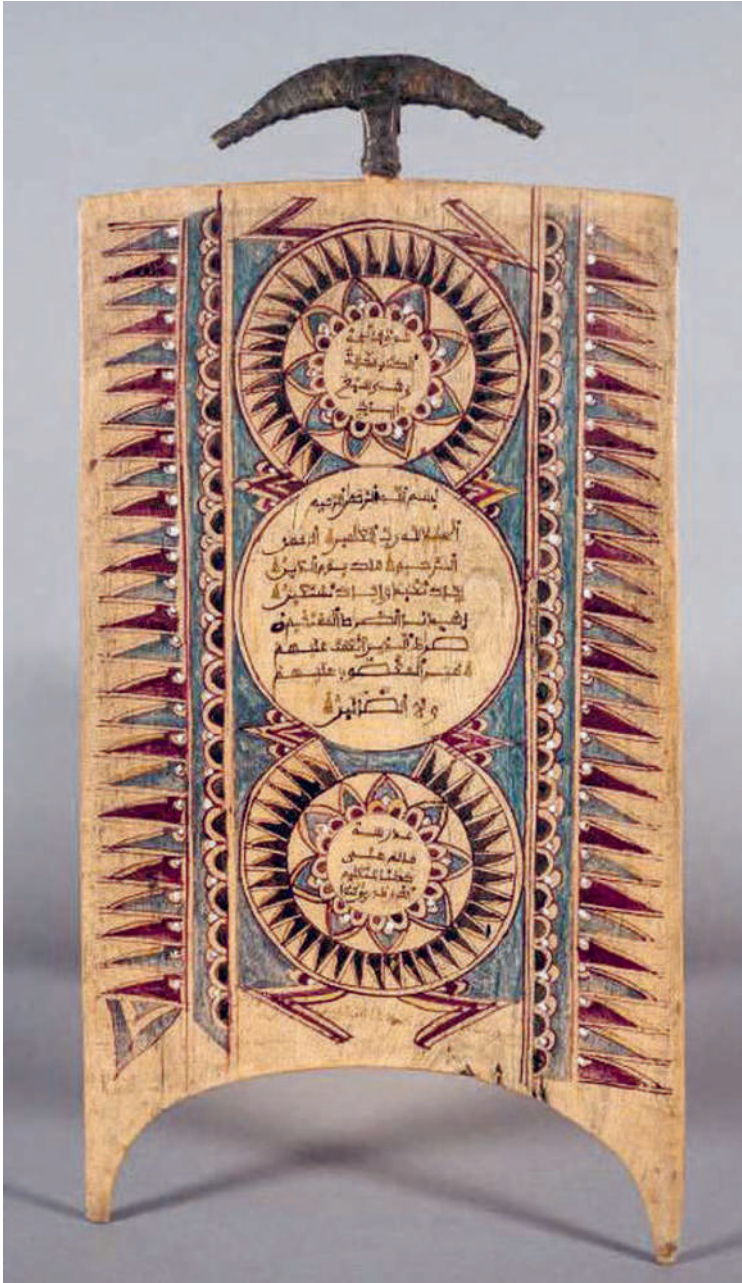 سورة فاتحة
الكتب مكية
وهي سبع
ايت
بسم الله الرحمن الرحيم
الحمد لله رب العلمين الرحمن
الرحيم ملك يوم الدين
اياك نعبد واياك نستعين
اهدنا الصرط المستقيم
صرط الذين انعمت عليهم
غير المغضوب عليهم
ولا الضالين
مدرسة
على